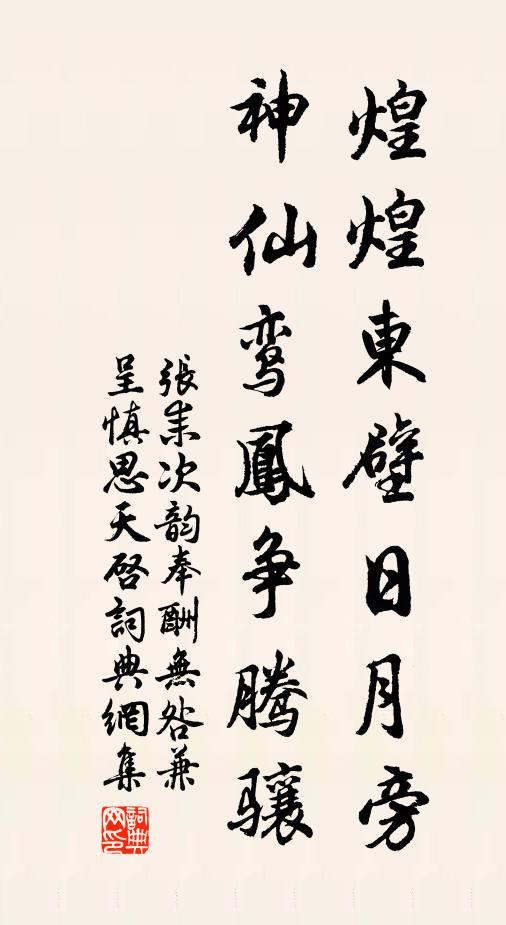 煌煌東壁日月旁
神仙鸾鳳争腾骧
張耒次韵奉酬無咎兼
呈慎思天啓詞典網集
詞典網印